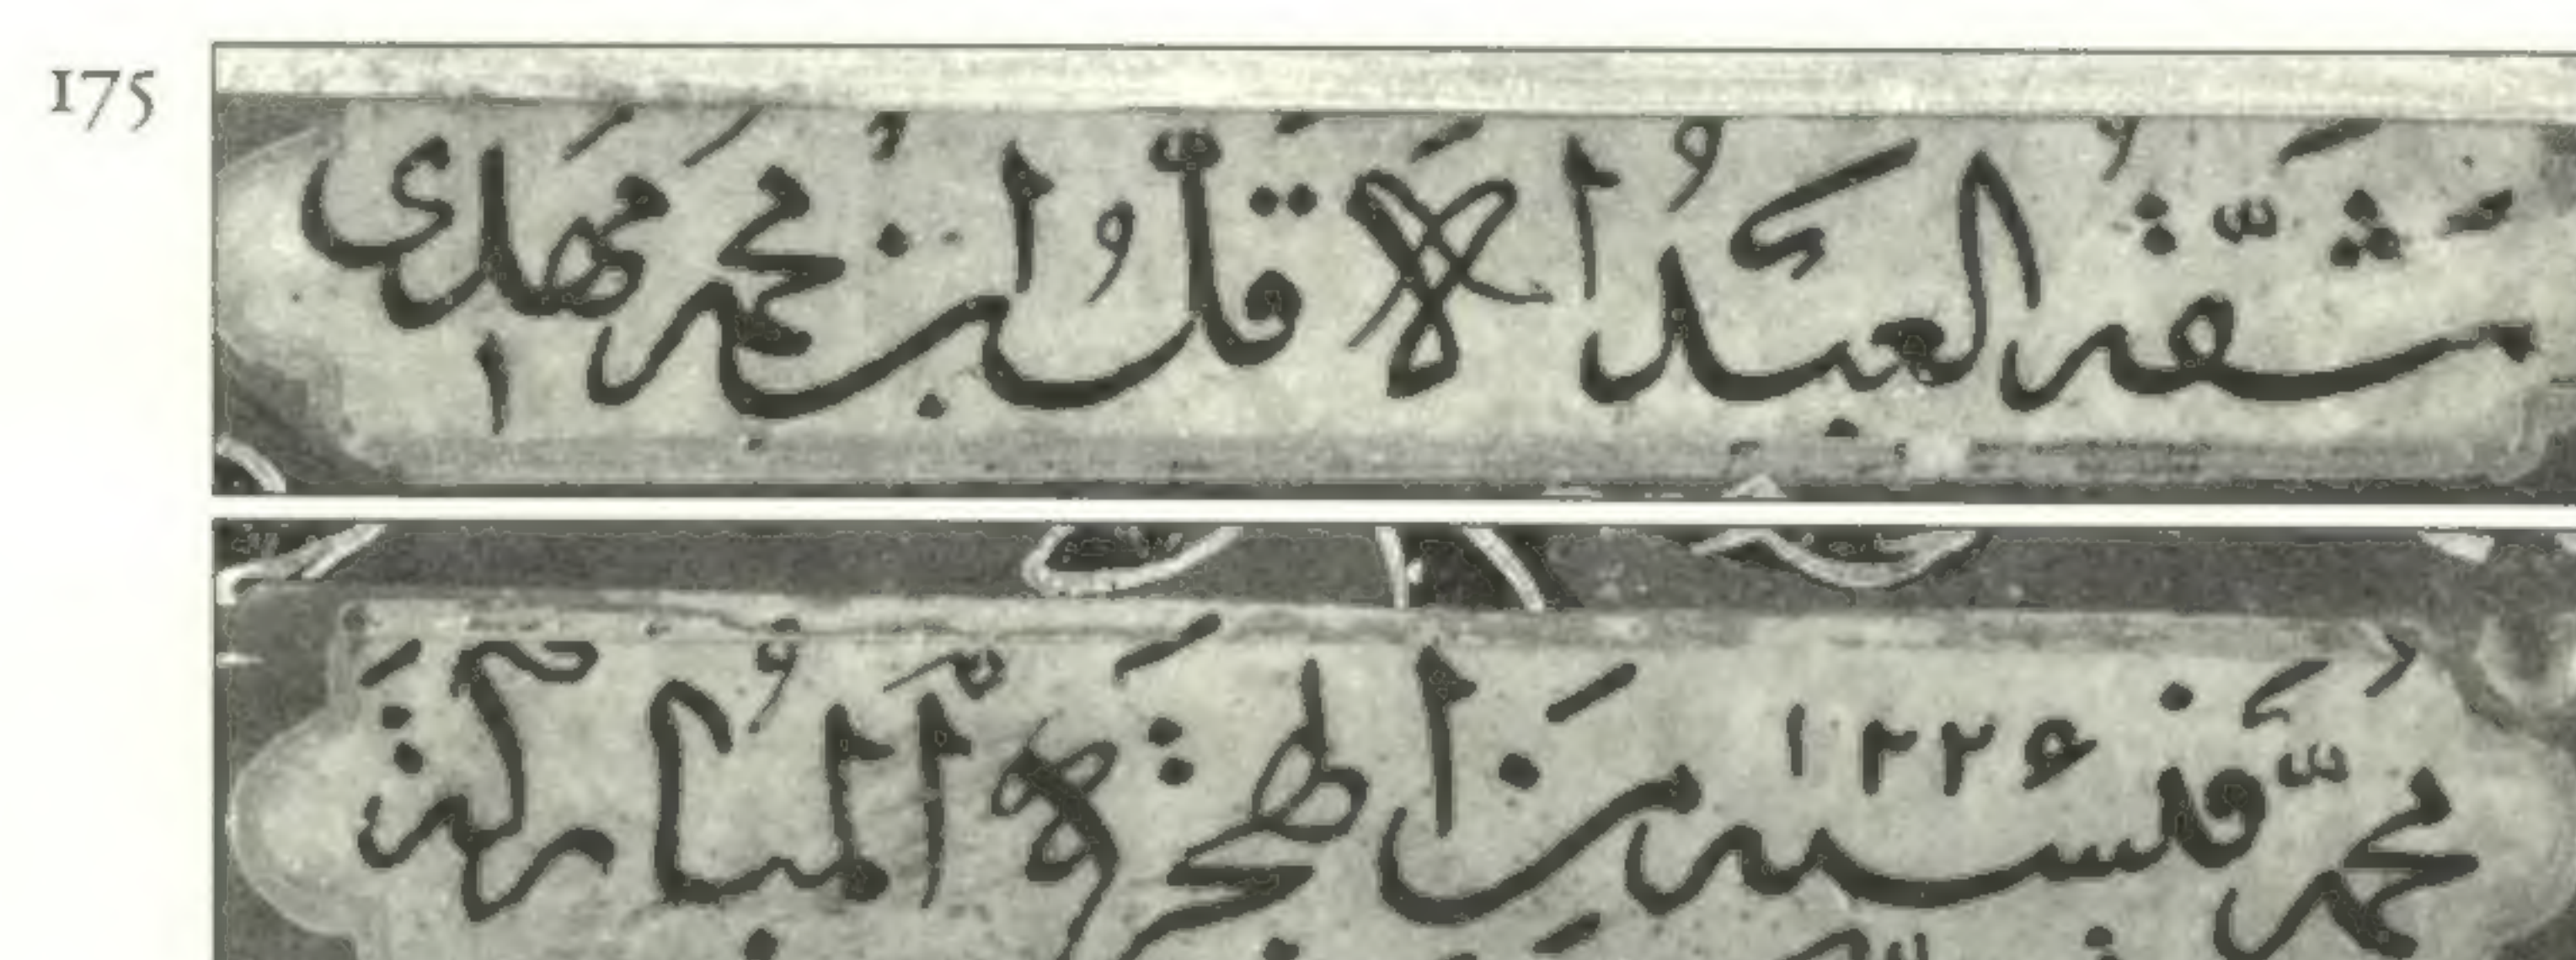 175
مشقه العبد الاقل ابن محمد مهدی
محمد فی سنه من الهجرة المباركة